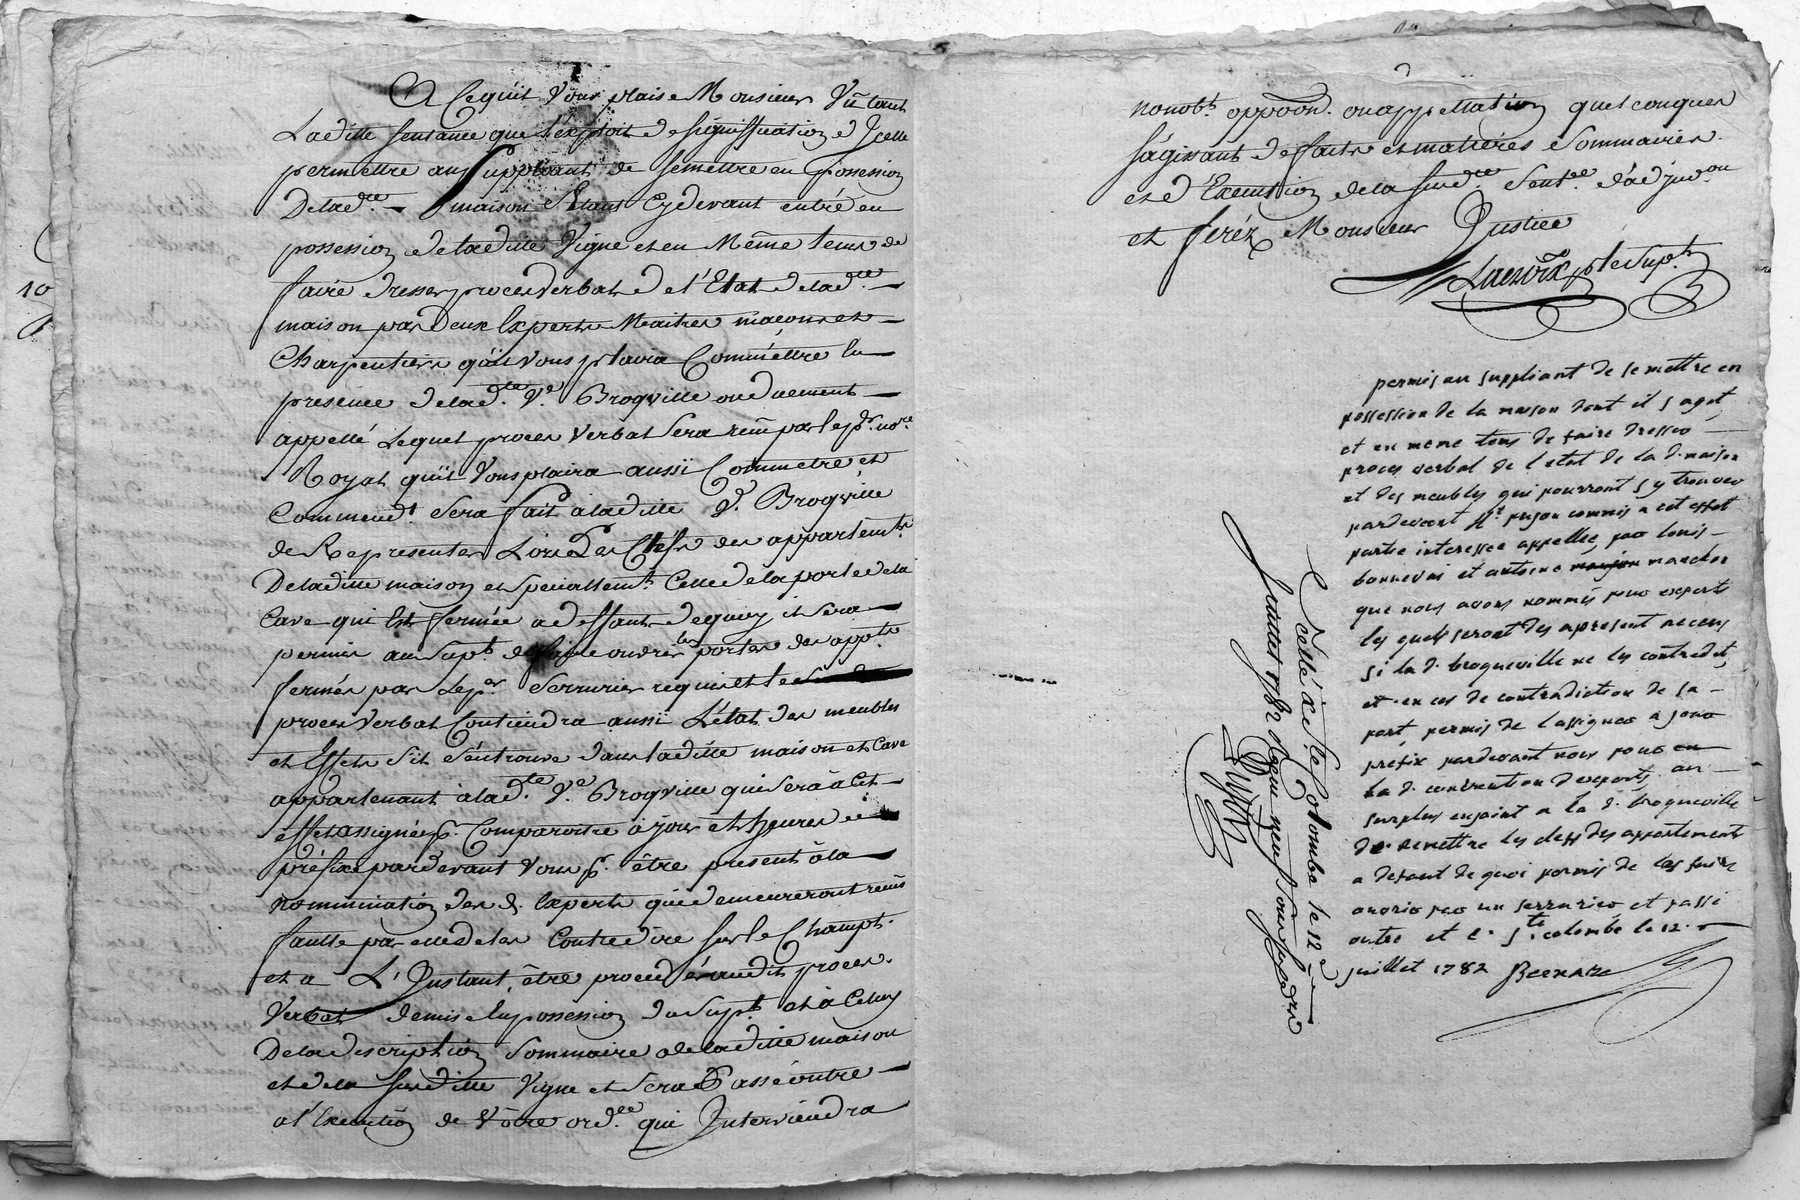 A Ce quil Vous plaise Monsieur Vû tant
Laditte sentance que L'exploit de signiffication d'Jcelle
permettre au Suppliant de se mettre en possession
De lad.tte maison Etant Cy devant entré en
possession de laditte Vigne et en Même tems de
faire dresser procès verbal de l'Etat de lad.tte
maison par deux Experts Maitres maçons et
Charpentiers quil vous plaira Commettre En
presence de lad.te V.e Brogville ou duement
appellé Lequel procès Verbal sera remi par le p.r no.re
Royal quil Vous plaira aussi Commettre et
Commend.t sera fait à laditte V.e Brogville
de Representer Lors Les Clefs des appartem.ts
De laditte maison et speciallem.t Celle de la porte de la
Cave qui Est fermée a deffaut de quoy il sera
permis au Sup.t de faire ouvrir les portes des app.ts
fermés par Le p.er Serrurier requis et le
procès verbal Contiendra aussi L'état des meubles
et Effets s'il s'en trouve dans laditte maison et Cave
appartenant à lad.te V.e Brogville qui sera à Cet
effet assignée p.r Comparoitre à jour et heures
préfixe pardevant Vous p.r être present à la
nomination des d. Experts qui demeureront remis
faulte par elle de les Contredire sur le Champt.
et a L'Instant, être procedé audit procès
Verbal de mise En possession du Sup.t et à Celuy
De la description Sommaire de laditte maison
et de la susditte Vigne et sera Passé outre
a l'Execution de Vôtre ord.ce qui Interviendra
nonobt. oppoon. ou appellation quelconques
s'agissant de faits et matieres Sommaires
et d'Execution de la susd.tte Sent.ce d'adjud.on
et feréz Monsieur Justice
Lacroix p.r le Sup.t
permis au suppliant de se mettre en
possession de la maison dont il s'agit
et en meme tems de faire dresser
proces verbal de l'etat de la d. maison
et des meubles qui pourront s'y trouver
pardevant M.e pujon commis a cet effet
partie interessee appellee, par louis
bonnevni et antoine mandon
que nous avons nommés pour experts
les quels seront des apresent reconus
si la d. broqueville ne les contredit,
et en cas de contradiction de sa
part permis de l'assigner a jour
prefix pardevant nous pour en
la d. convention d'experts au
surplus enjoint a la d. broqueville
de remettre les clefs des appartements
a defaut de quoi permis de les faire
ouvrir par un serrurier et passé
outre et c. S.te colombe le 12.
juillet 1782 Bernard
Scellé à S.te Colombe le 12.e
Juillet 1782 Reçu neuf sous six den.